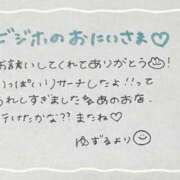 ビジホのおにいさま♡
お誘いしてくれてありがとう
いっぱいリサーチしたよ!!って
うれしすぎました あのお店、
行けたかな?? またね♡
ゆずるより